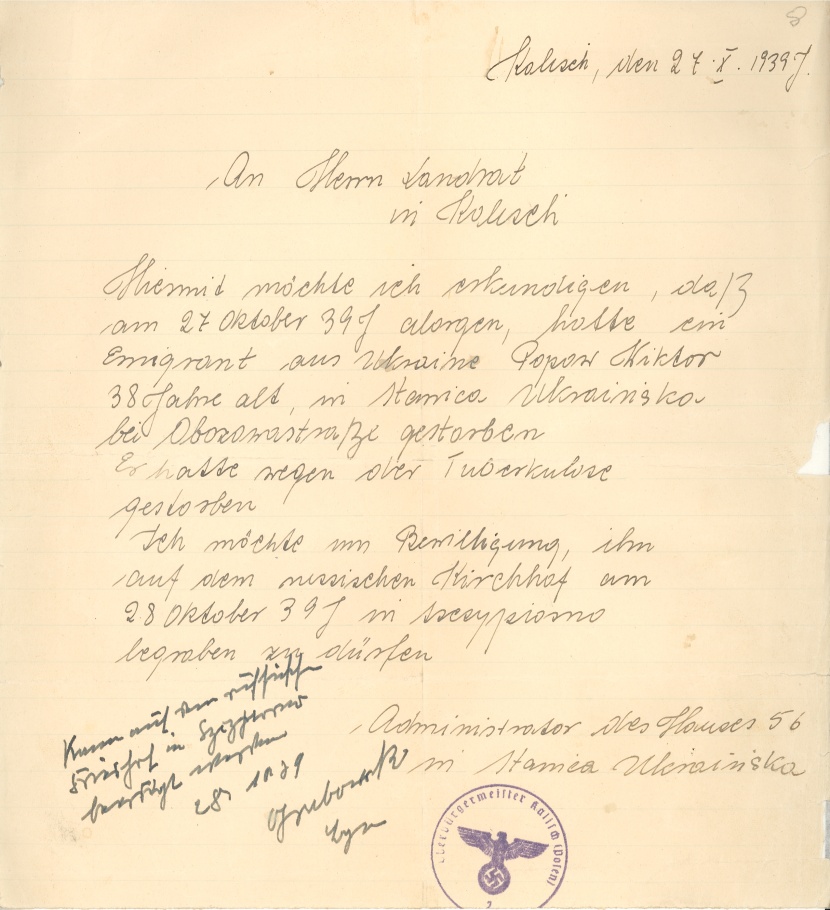 8
Kalisch, den 27.X.1939J.
An Herrn Landrat
in Kalisch
Hiermit möchte ich erkundigen, daß
am 27 Oktober 39J Morgen, hatte ein
Emigrant aus Ukraine Popow Wiktor
38 Jahre alt, in Stanica Ukraińska
bei Obozowastraße gestorben
Er hatte wegen der Tuberkulose
gestorben
Ich möchte um Bewilligung, ihn
auf dem russischen Kirchhof am
28 Oktober 39J in Szczypiorno
begraben zu dürfen
Kann auf dem russischen
Friedhof in Szczypiorno
beerdigt werden
28 10 39
Administrator des Hauses 56
in Stanica Ukraińska
Oberbürgermeister Kalisch (Posen)